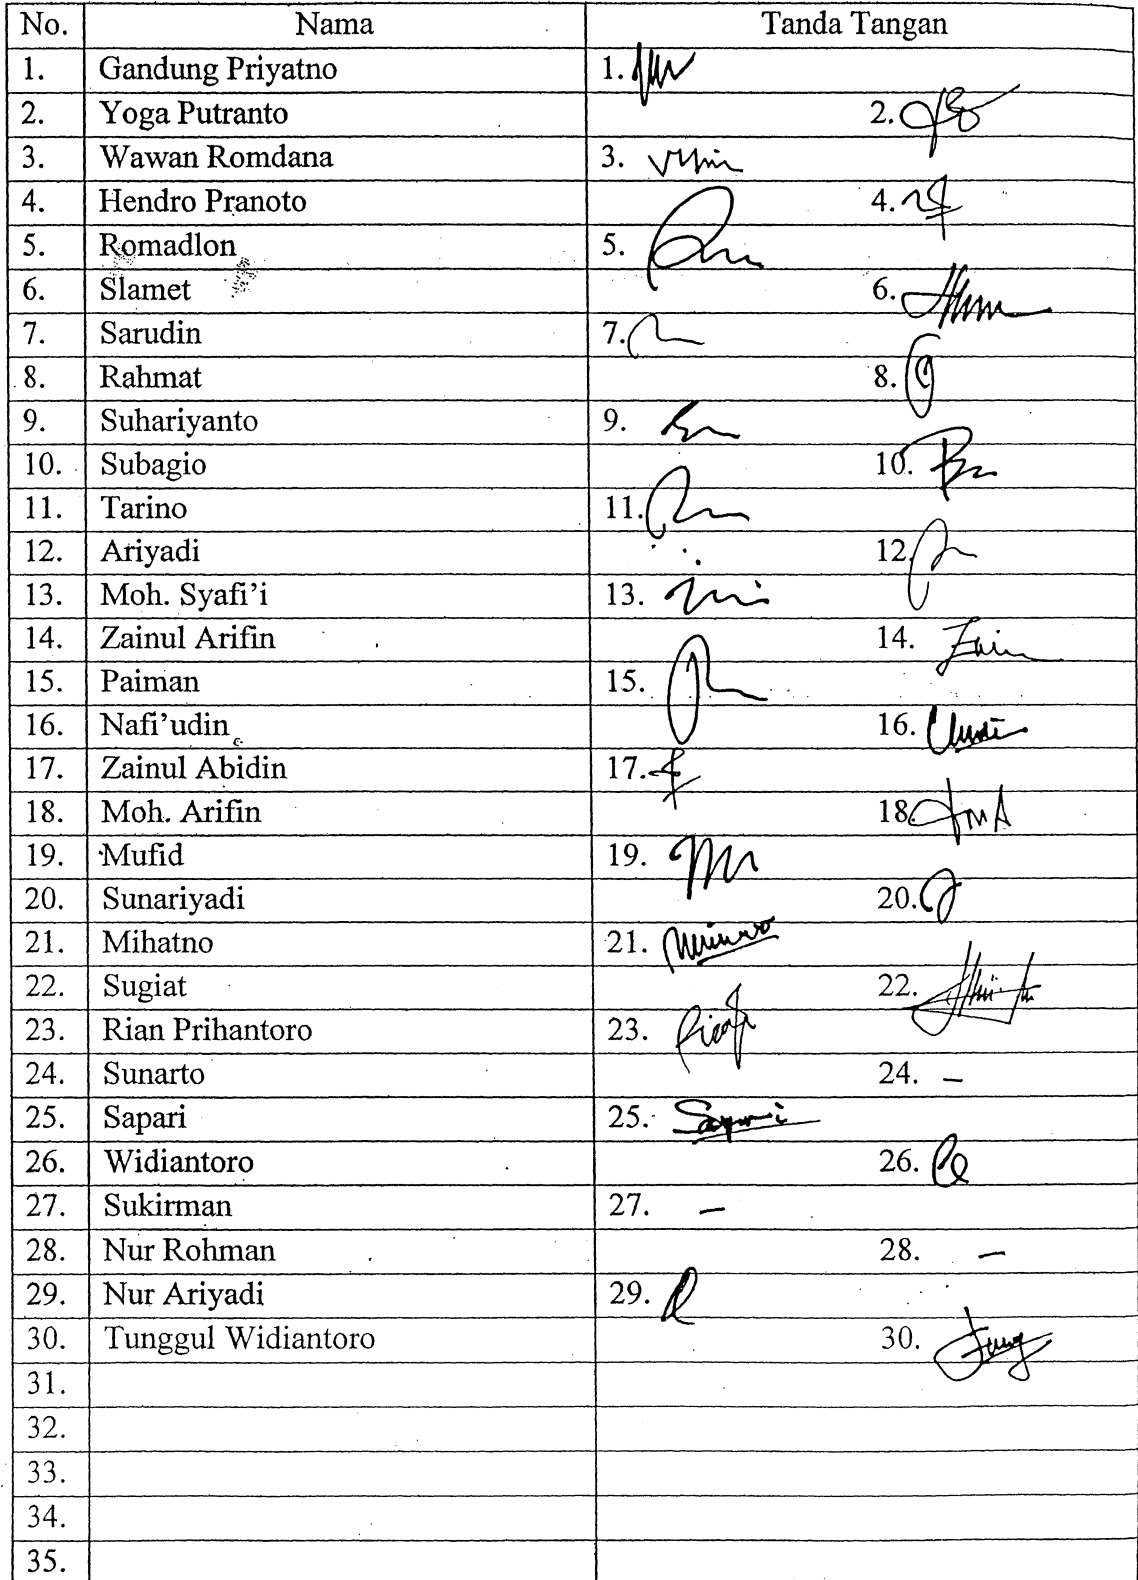 No. Nama Tanda Tangan
1. Gandung Priyatno 1.
2. Yoga Putranto 2.
3. Wawan Romdana 3.
4. Hendro Pranoto 4.
5. Romadlon 5.
6. Slamet 6.
7. Sarudin 7.
8. Rahmat 8.
9. Suhariyanto 9.
10. Subagio 10.
11. Tarino 11.
12. Ariyadi 12.
13. Moh. Syafi'i 13.
14. Zainul Arifin 14.
15. Paiman 15.
16. Nafi'udin 16.
17. Zainul Abidin 17.
18. Moh. Arifin 18.
19. Mufid 19.
20. Sunariyadi 20.
21. Mihatno 21.
22. Sugiat 22.
23. Rian Prihantoro 23.
24. Sunarto 24. –
25. Sapari 25.
26. Widiantoro 26.
27. Sukirman 27. –
28. Nur Rohman 28. –
29. Nur Ariyadi 29.
30. Tunggul Widiantoro 30.
31.
32.
33.
34.
35.